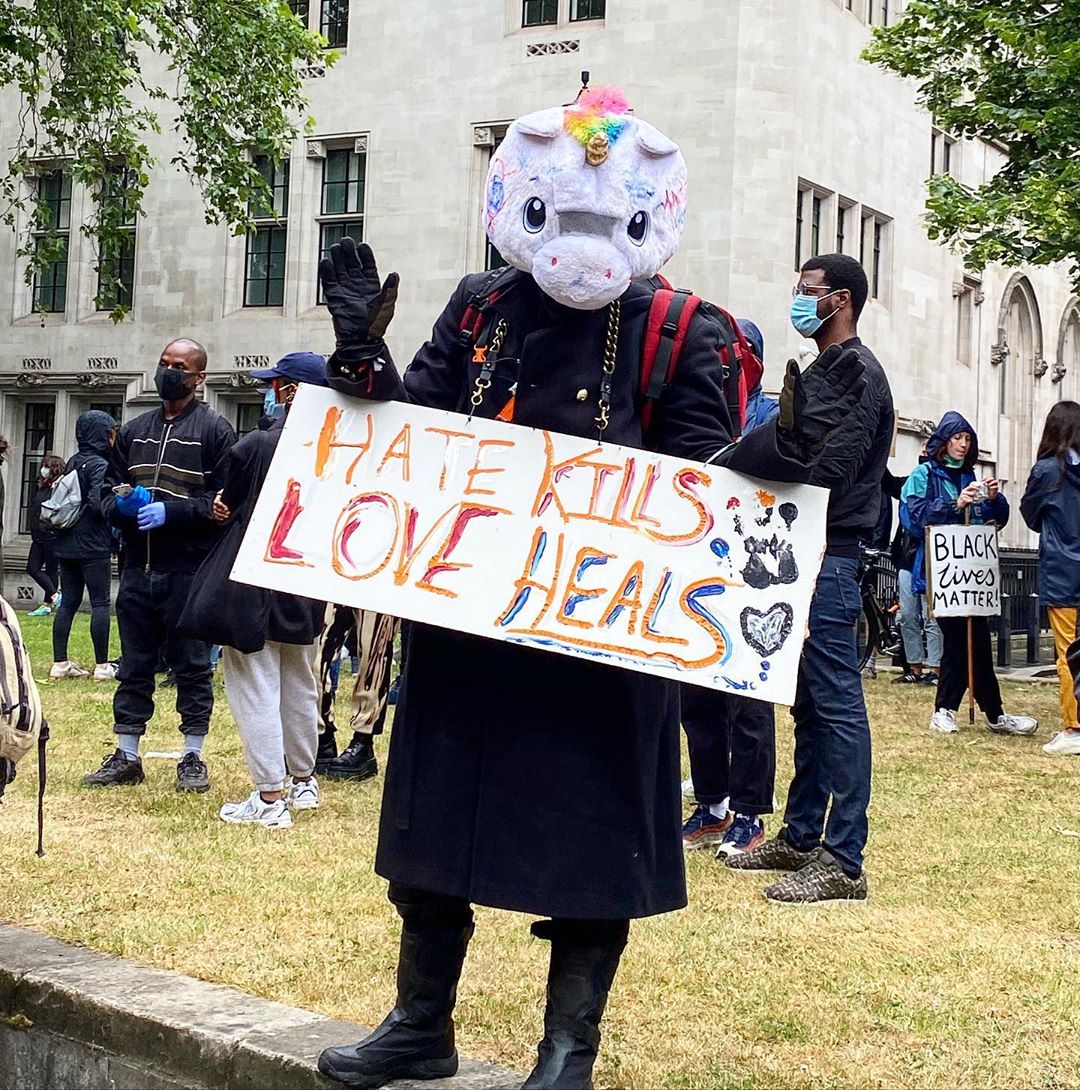 HATE KILLS
LOVE HEALS
BLACK
Lives
MATTER!